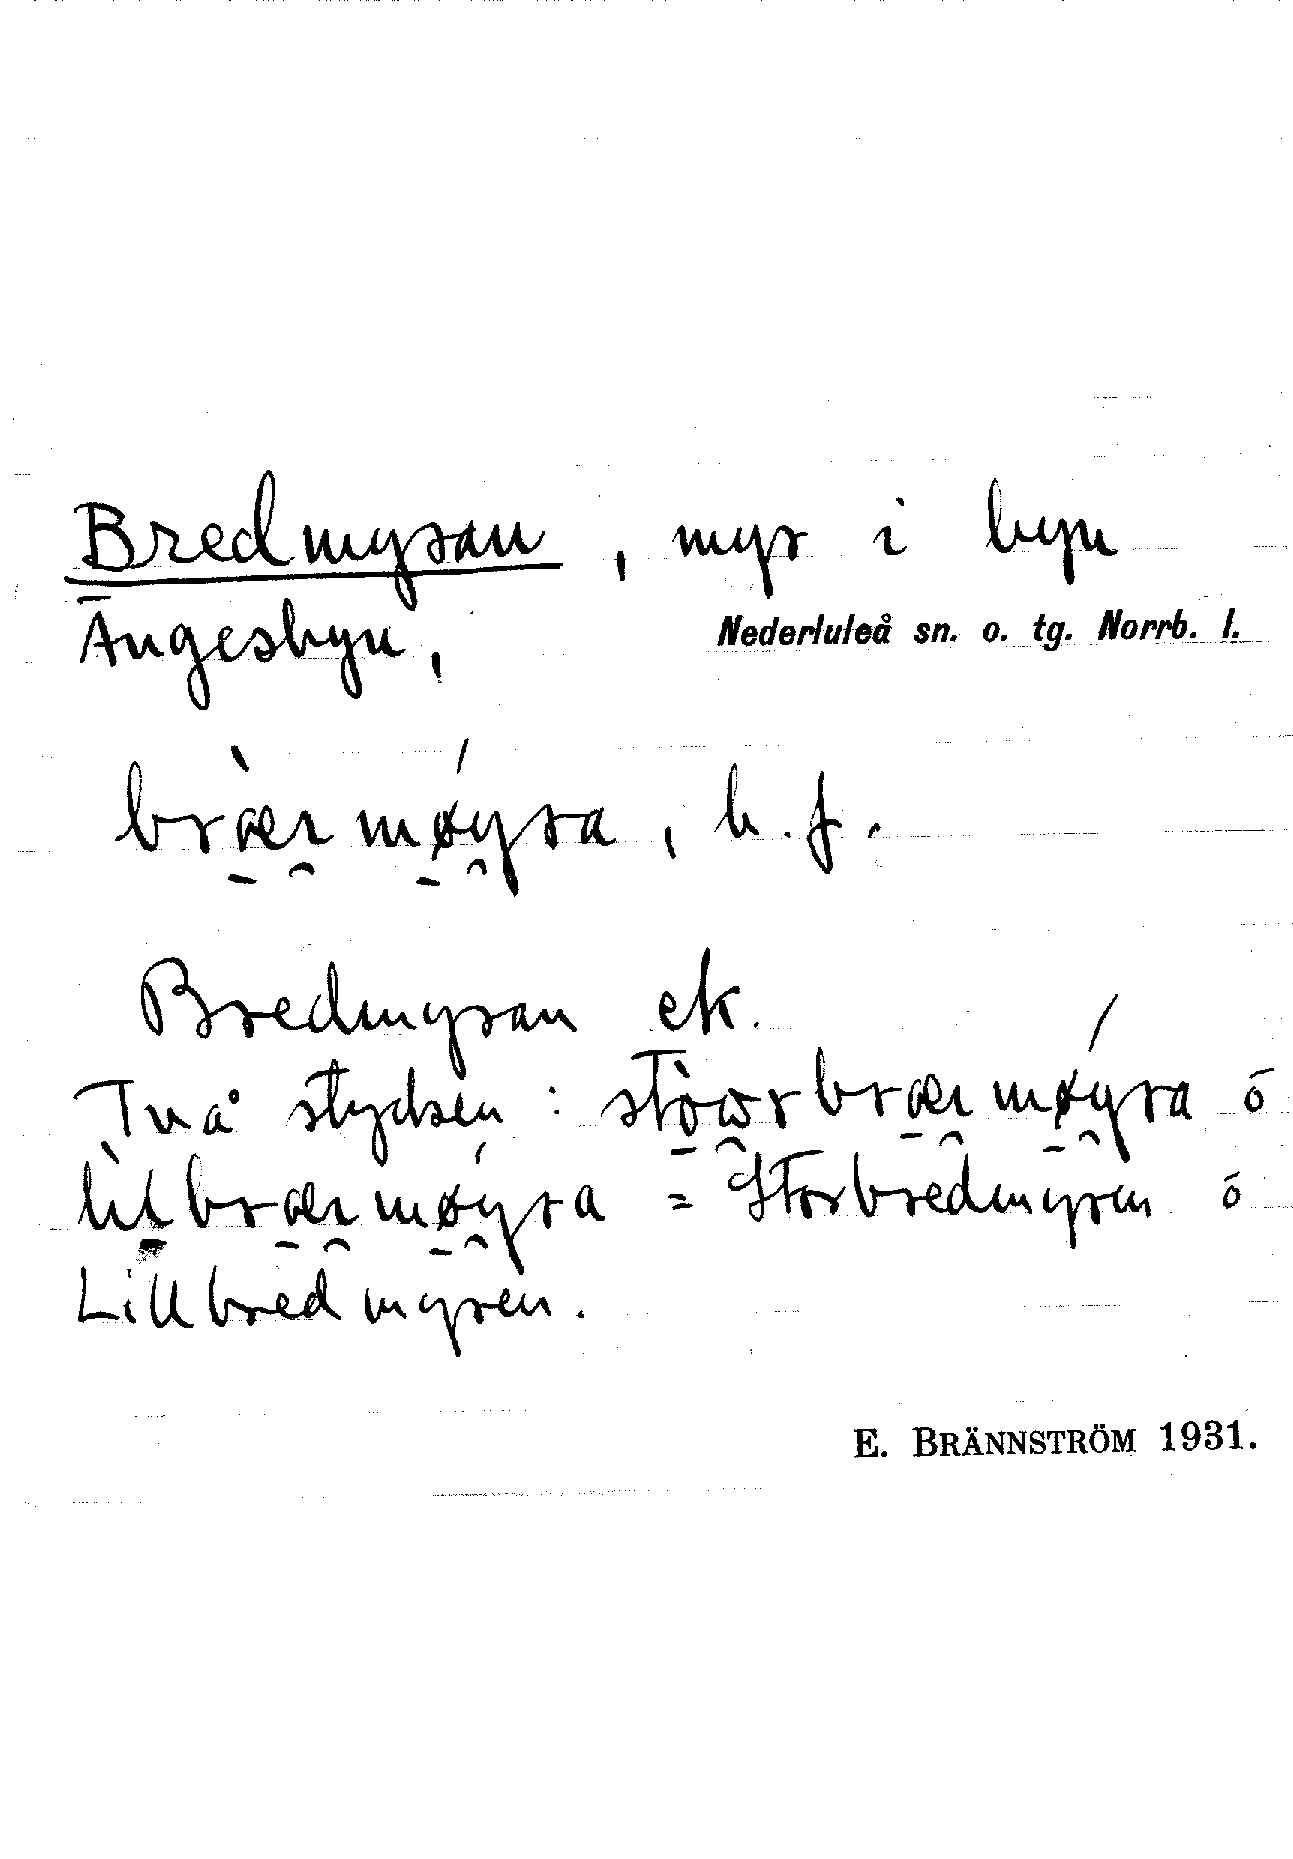 Bredmyran, myr i byn
Ängesbyn, Nederluleå sn. o. tg. Norrb. l.
bræ̀rmǿyra, b. f.
Bredmyran ek.
Två stycken: stòwrbrærmǿyra ō
lìtbrærmǿyra = Storbredmyren ō
Lillbredmyren.
E. BRÄNNSTRÖM 1931.